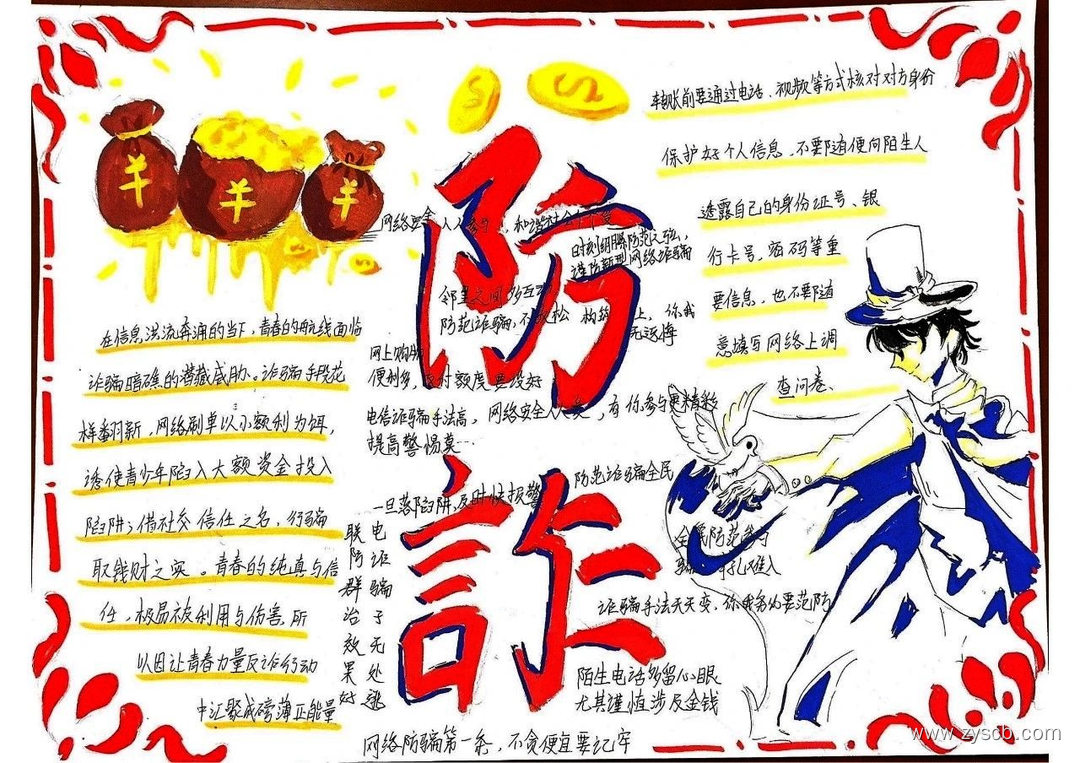 防
诈
在信息洪流奔涌的当下,青春的航线面临
诈骗暗礁的潜藏威胁、诈骗手段花
样翻新,网络刷单以小额利为饵,
诱使青少年陷入大额资金投入
陷阱;借社交信任之名,行骗
取钱财之实。青春的纯真与信
任,极易被利用与伤害,所
以因让青春力量反诈行动
中汇聚成磅薄正能量
网络安全人人
时刻绷
谨防新型网络诈骗
邻里之间多互
防范诈骗,不放松
你我
网上购
便利多,
额度要设好
电信诈骗手法高,网络安全人人
,有你参与更精彩
提高警惕莫…
防范诈骗全民
一旦落陷阱,及时快报警
电诈骗子无处逃
联防群治效果好
全民防范
难入
诈骗手法天天变,你我务必要范防
陌生电话多留心眼
尤其谨慎涉及金钱
网络防骗第一条,不贪便宜要记牢
转账前要通过电话、视频等方式核对对方身份
保护好个人信息,不要随便向陌生人
透露自己的身份证号、银
行卡号,密码等重
要信息,也不要随
意填写网络上调
查问卷、
www.zyscb.com